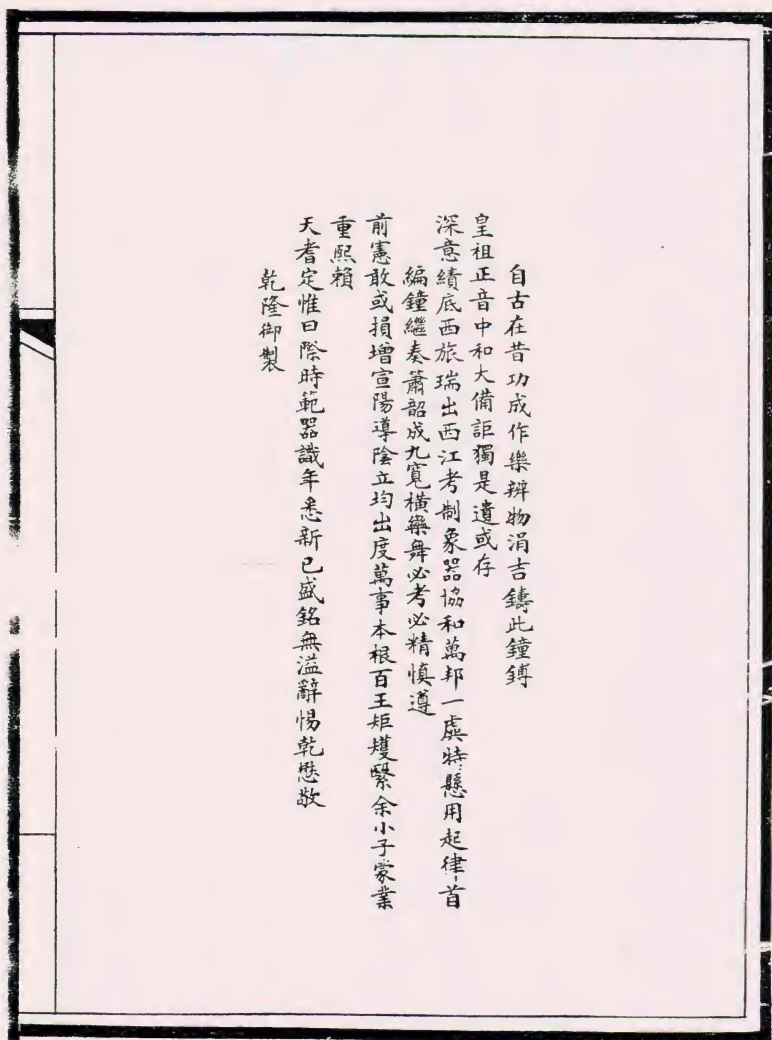 自古在昔功成作樂辨物涓吉鑄此鐘鎛
皇祖正音中和大備詎獨是遺或存
深意績底西旅瑞出西江考制象器協和萬邦一虡特懸用起律首
編鐘繼奏簫韶成九寬橫欒舞必考必精慎遵
前憲敢或損增宣陽導陰立均出度萬事本根百王矩矱緊余小子蒙業
重熙賴
天耆定惟曰際時範器識年悉新已盛銘無溢辭惕乾懋敬
乾隆御製